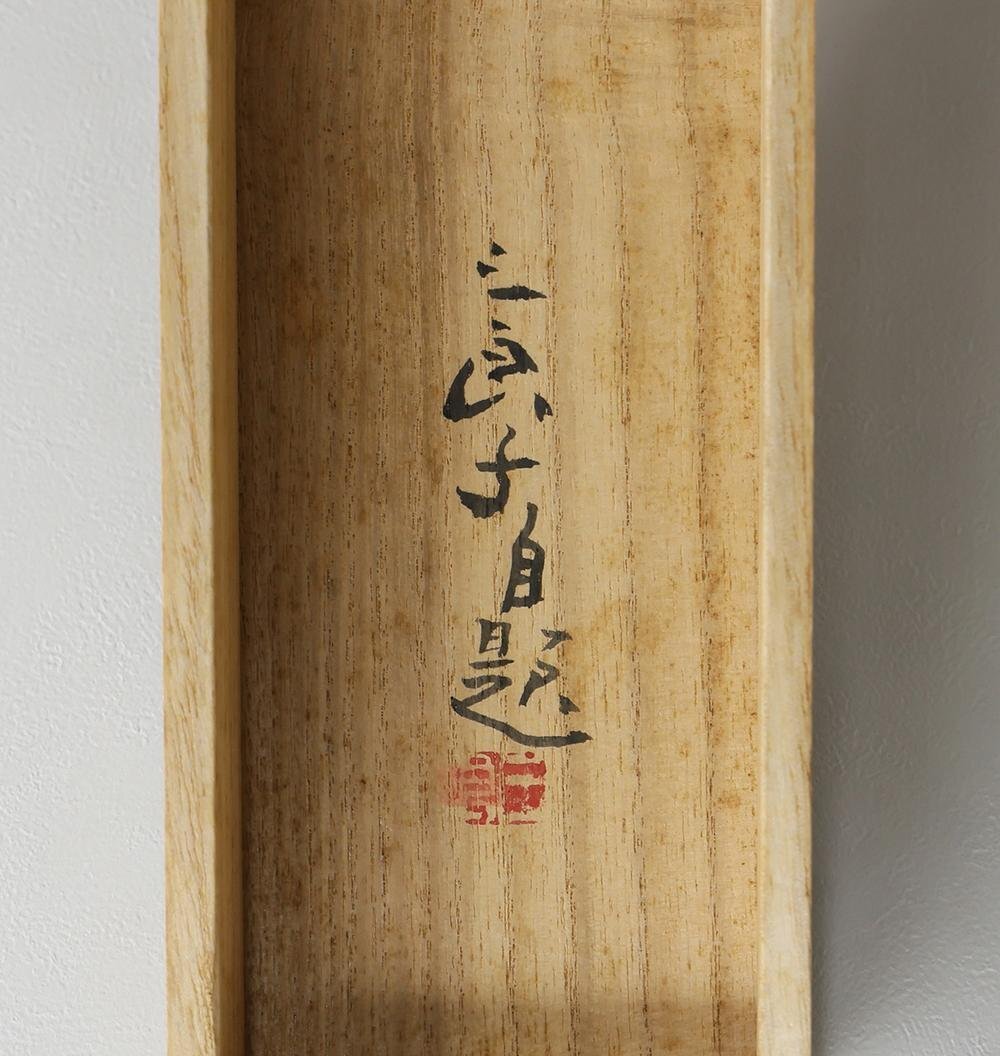 三良子自題